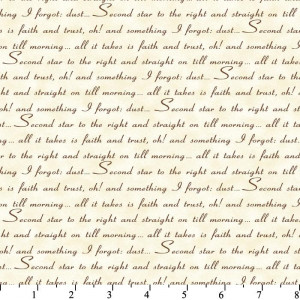 I forgot: dust... Second star to the right and straight on till
is faith and trust, oh! and something I forgot: dust... Second
till morning... all it takes is faith and trust, oh! and something
Second star to the right and straight on till morning... all it takes
and trust, oh! and something I forgot: dust... Second star to the
and straight on till morning... all it takes is faith and trust,
oh! and something I forgot: dust... Second star to the right
dust... Second star to the right and straight on till morning...
morning... all it takes is faith and trust, oh! and something I
star to the right and straight on till morning... all it takes is
I forgot: dust... Second star to the right and straight on till
is faith and trust, oh! and something I forgot: dust...
till morning... all it takes is faith and trust, oh! and something
Second star to the right and straight on till morning... all it
and straight on till morning... all it takes is faith and trust,
oh! and something I forgot: dust... Second star to the right
Second star to the right and straight on till morning...
morning... all it takes is faith and trust, oh! and something
1 2 3 4 5 6 7 8